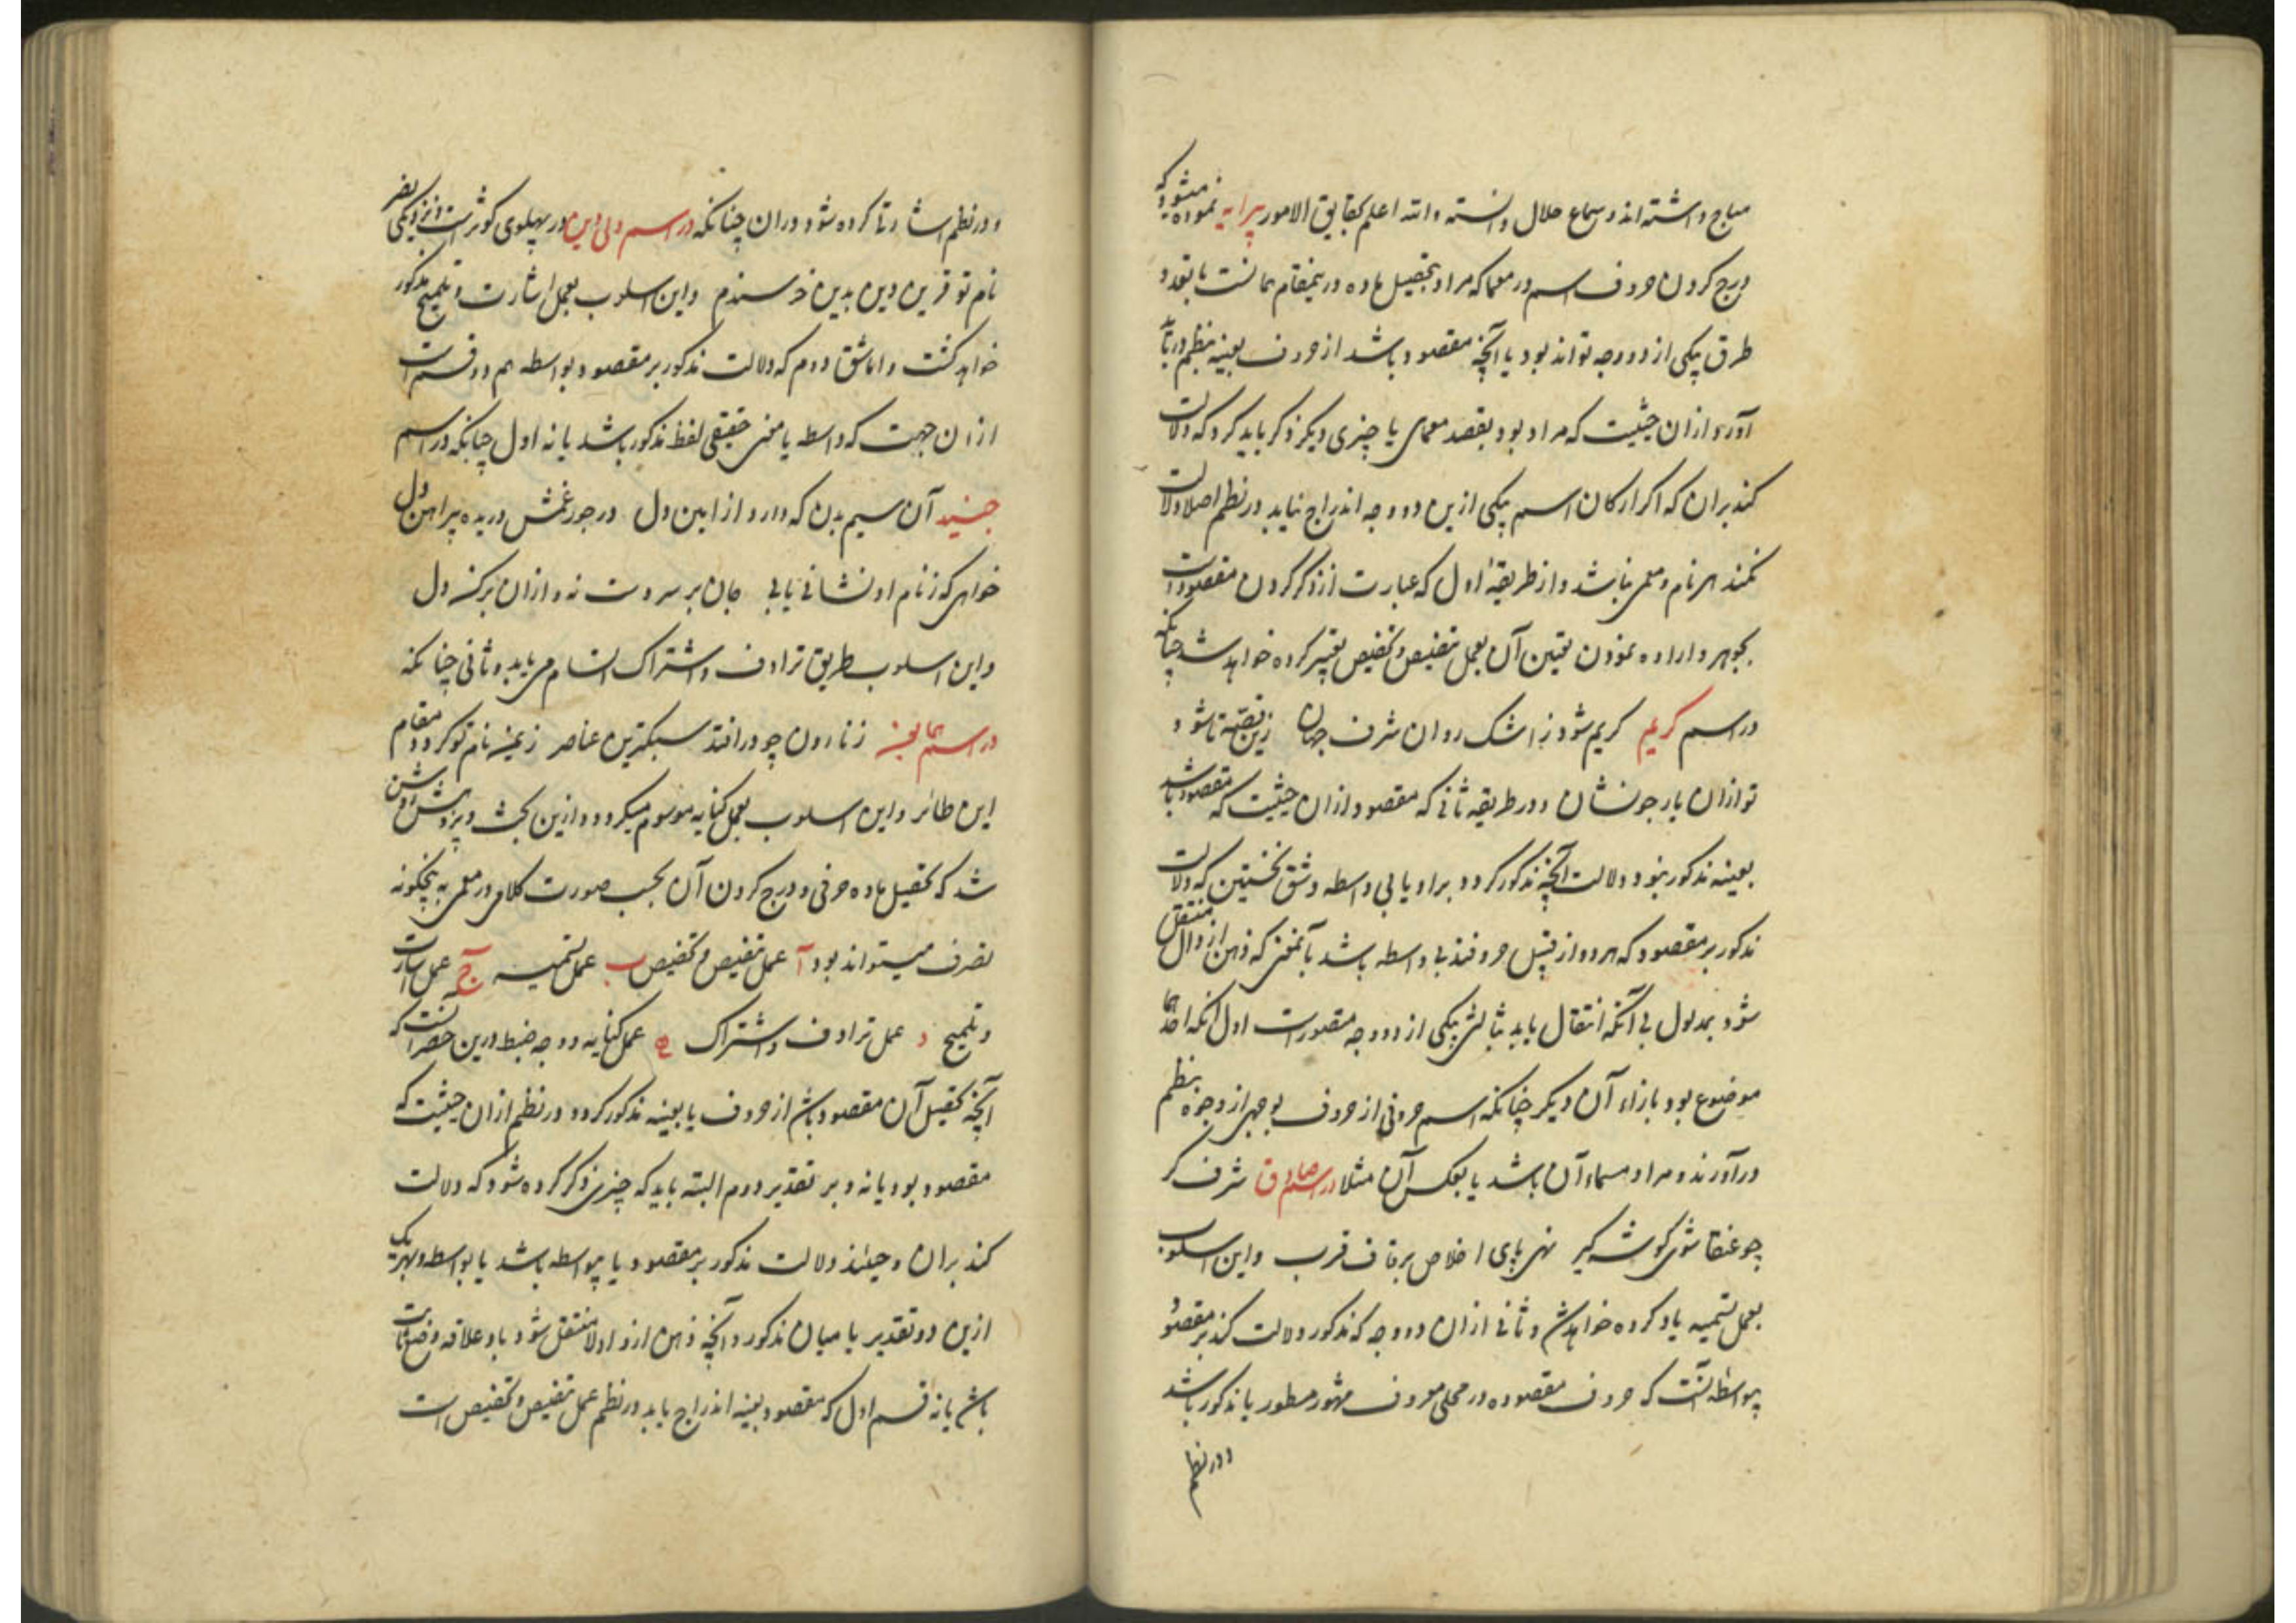 مباح داشته‌اند و سماع حلال دانسته والله اعلم بحقایق الامور پیرایه نموده میشود که
درج کردن حروف اسم در معما که مراد بتحصیل ماده درینمقام همانست با تعدد
طرق یکی از دو وجه تواند بود یا آنچه مقصود باشد از حروف بعینه بنظم در
آورد از آن حیثیت که مراد بود بقصد معمای یا چیزی دیگر ذکر باید کرد که دلالت
کند بران که اگر ارکان اسم یکی ازین دو وجه اندراج نیابد در نظم اصلا دلالت
نکند بر نام و معمی نباشد و از طریقهٔ اول که عبارت از ذکر کردن مقصودست
بجوهر و اراده نمودن تعیین آن بعمل تنصیص و تخصیص تعبیر کرده خواهد شد چنانکه
در اسم کریم کریم شود ز اشک روان شرف جهان زین قصه تا شود
تو ازان یار جو نشان و در طریقه ثانی که مقصود ازان حیثیت که مقصود باشد
بعینه مذکور نبود دلالت آنچه مذکور گردد برو یا بی واسطه و شق نخستین که دلالت
مذکور بر مقصود که هر دو از قبیل حروفند بی واسطه باشد بآنمعنی که ذهن از دال منتقل
شود بمدلول بی آنکه انتقال یابد بثالثی یکی از دو وجه متصورست اول آنکه احدهما
موضوع بود بازاء آن دیگر چنانکه اسم حرفی از حروف بوجهی از وجوه بنظم
درآورند و مراد مسماء آن باشد یا بعکس آن مثلا در اسم صادق شرف گر
چو عنقا شوی گوشه گیر نهی پای اخلاص بر قاف قرب و این اسلوب
بعمل تسمیه یاد کرده خواهد شد و ثانی ازان دو وجه که مذکور دلالت کند بر مقصود
بیواسطه آنست که حروف مقصوده در محلی معروف مشهور مسطور یا مذکور باشد
و در نظم
و در نظم اشارتا کرده شود دران چنانکه در اسم ولی الدین در پهلوی کوثرست
نام تو قرین دین بدین خرسندم و این اسلوب بعمل اشارت و تلمیح مذکور
خواهد گشت و اما شق دوم که دلالت مذکور بر مقصود بواسطه هم دو قسم است
ازان جهت که واسطه یا معنی حقیقی لفظ مذکور باشد یا نه اول چنانکه در اسم
جنید آن سیم بدن که دارد از این دل در جور غمش دریده پیراهن دل
خواهی که ز نام او نشانی یابی جان بر سر دست نه و ازان برکن دل
و این اسلوب بطریق ترادف و اشتراک اتسام می یابد و ثانی چنانکه
در اسم ز نار دون چو درافتد سبکترین عناصر ز عینه نام تو گردد مقام
این طائر و این اسلوب بعمل کنایه موسوم میگردد و ازین بحث و پژوهش روشن
شد که تحصیل ماده حرفی و درج کردن آن بحسب صورت کلام در معمی به پنجگونه
تصرف میتواند بود آ عمل تنصیص و تخصیص ب عمل تسمیه ج عمل اشارت
و تلمیح د عمل ترادف و اشتراک ه عمل کنایه و وجه ضبط درین حصر آنست که
آنچه تحصیل آن مقصود باشد از حروف یا بعینه مذکور گردد در نظم ازان حیثیت که
مقصود بود یا نه و بر تقدیر دوم البته باید که چیزی ذکر کرده شود که دلالت
کند بران و حینئذ دلالت مذکور بر مقصود یا بیواسطه باشد یا بواسطه و بهر یک
ازین دو تقدیر یا میان مذکور و آنچه ذهن ازو اولا منتقل شود باو علاقه وضع ثابت
باشد یا نه قسم اول که مقصود بعینه اندراج یابد در نظم عمل تنصیص و تخصیص است